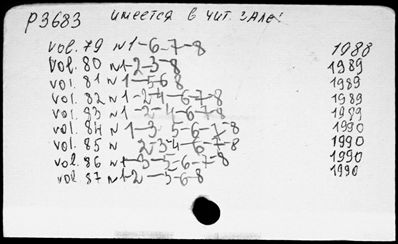 P3683 имеется в чит. зале!
vol. 79 N1-6-7-8 1988
vol. 80 N1-2-3-8 1989
vol. 81 N1-5-6-8 1989
vol. 82 N1-2-4-6-7-8 1989
vol. 83 N1-2-4-6-7-8 1989
vol. 84 N1-3-5-6-7-8 1990
vol. 85 N 2-3-4-6-7-8 1990
vol. 86 N1-3-5-6-7-8 1990
vol. 87 N1-2-5-6-8 1990